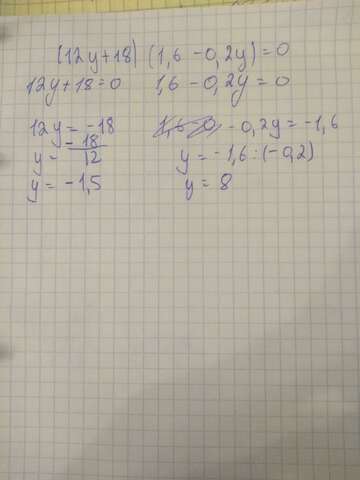 (12y+18) (1,6 - 0,2y) = 0
12y+18=0 1,6 - 0,2y = 0
12y = -18 - 0,2y = -1,6
y = - 18/12 y = -1,6 : (-0,2)
y = -1,5 y = 8